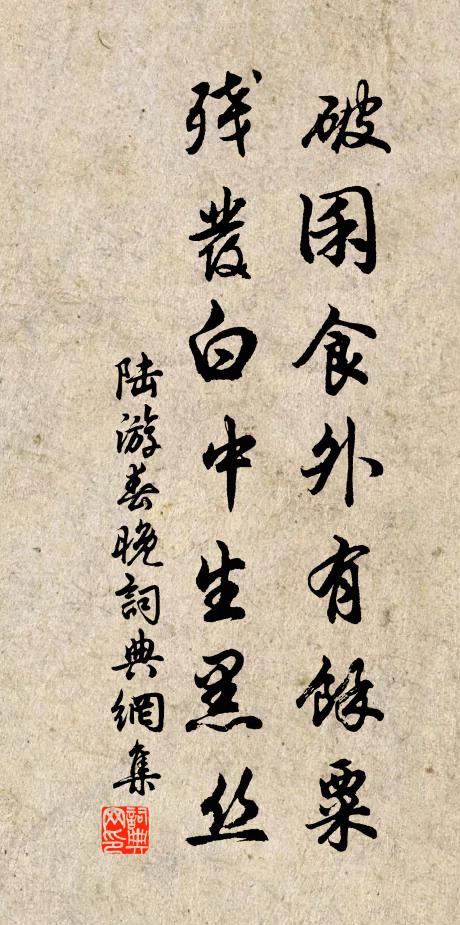 破囷食外有餘粟
殘發白中生黑丝
陆游春晚詞典網集
詞典网印